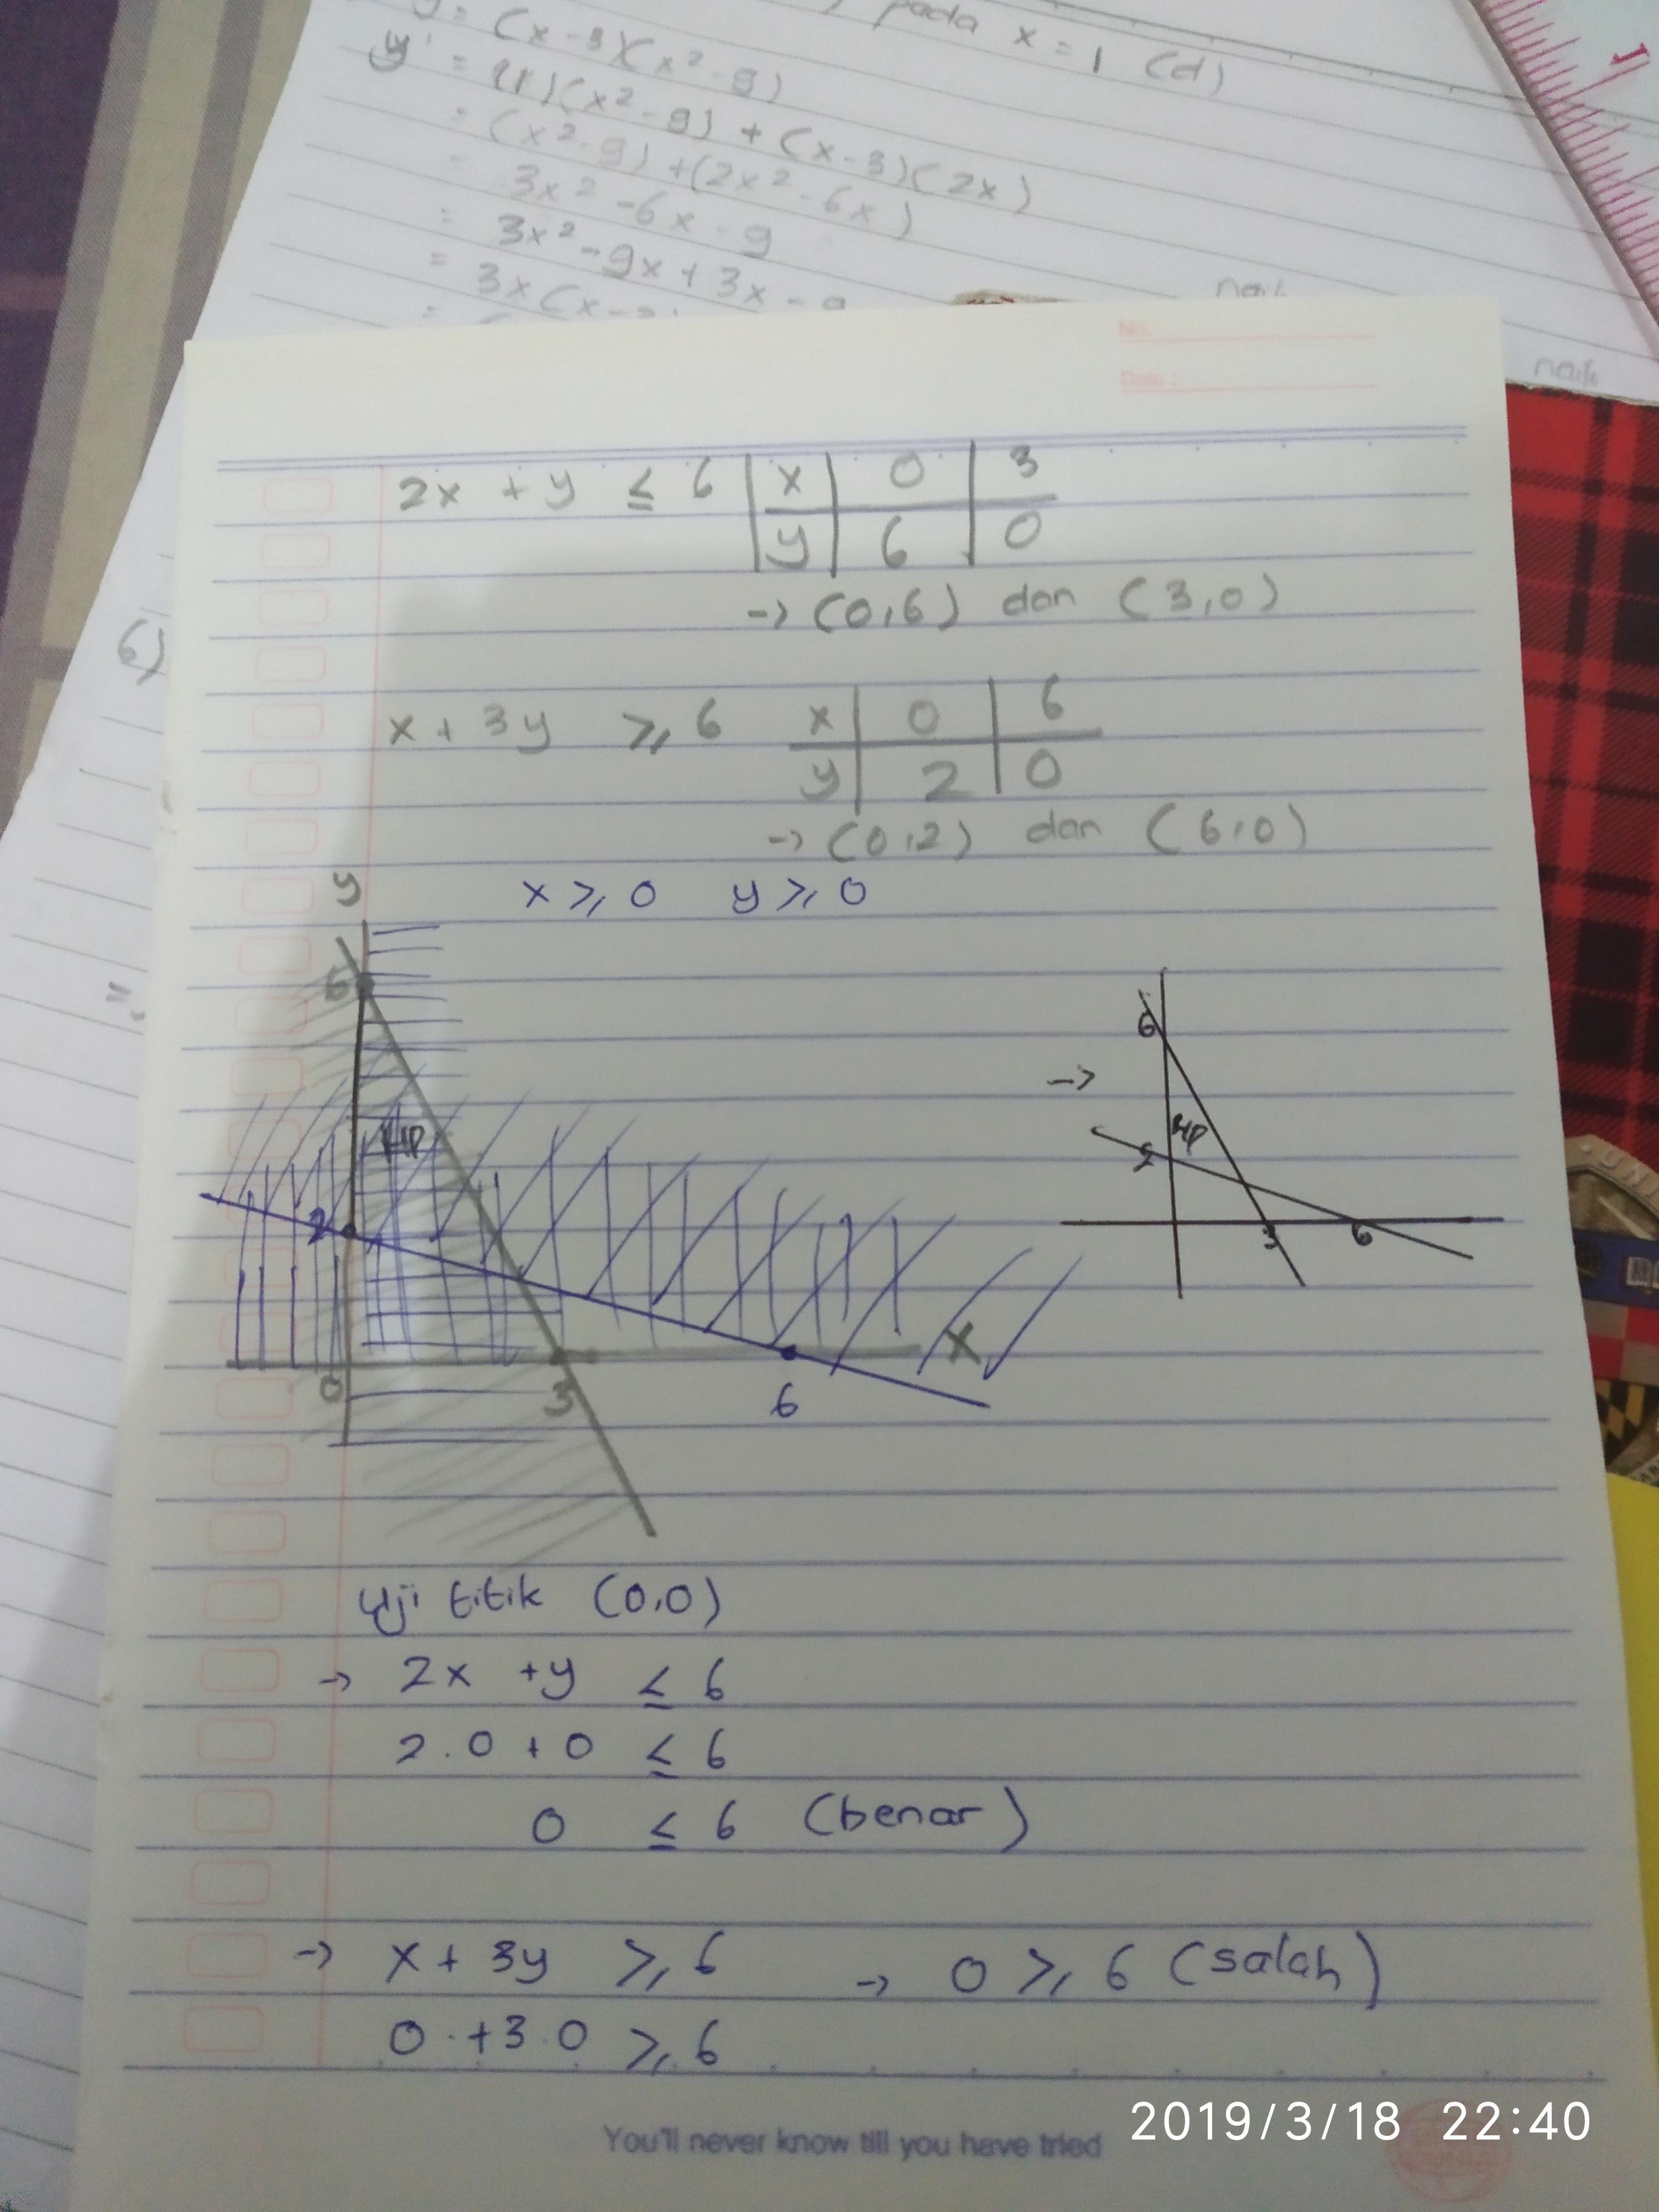 pada x = 1 (d)
y = (x - 3)(x² - 9)
y' = (1)(x² - 9) + (x - 3)(2x)
= (x² - 9) + (2x² - 6x)
= 3x² - 6x - 9
= 3x² - 9x + 3x - 9
= 3x(x - 3)
naik
naik
No.
Date :
6)
2x + y ≤ 6 | x | 0 | 3
y | 6 | 0
-> (0,6) dan (3,0)
x + 3y ≥ 6 x | 0 | 6
y | 2 | 0
-> (0,2) dan (6,0)
x ≥ 0 y ≥ 0
y
6
HP
2
0
3
6
X
->
6
HP
2
3
6
Uji titik (0,0)
-> 2x + y ≤ 6
2.0 + 0 ≤ 6
0 ≤ 6 (benar)
-> x + 3y ≥ 6 -> 0 ≥ 6 (salah)
0 + 3.0 ≥ 6
You'll never know till you have tried
2019/3/18 22:40